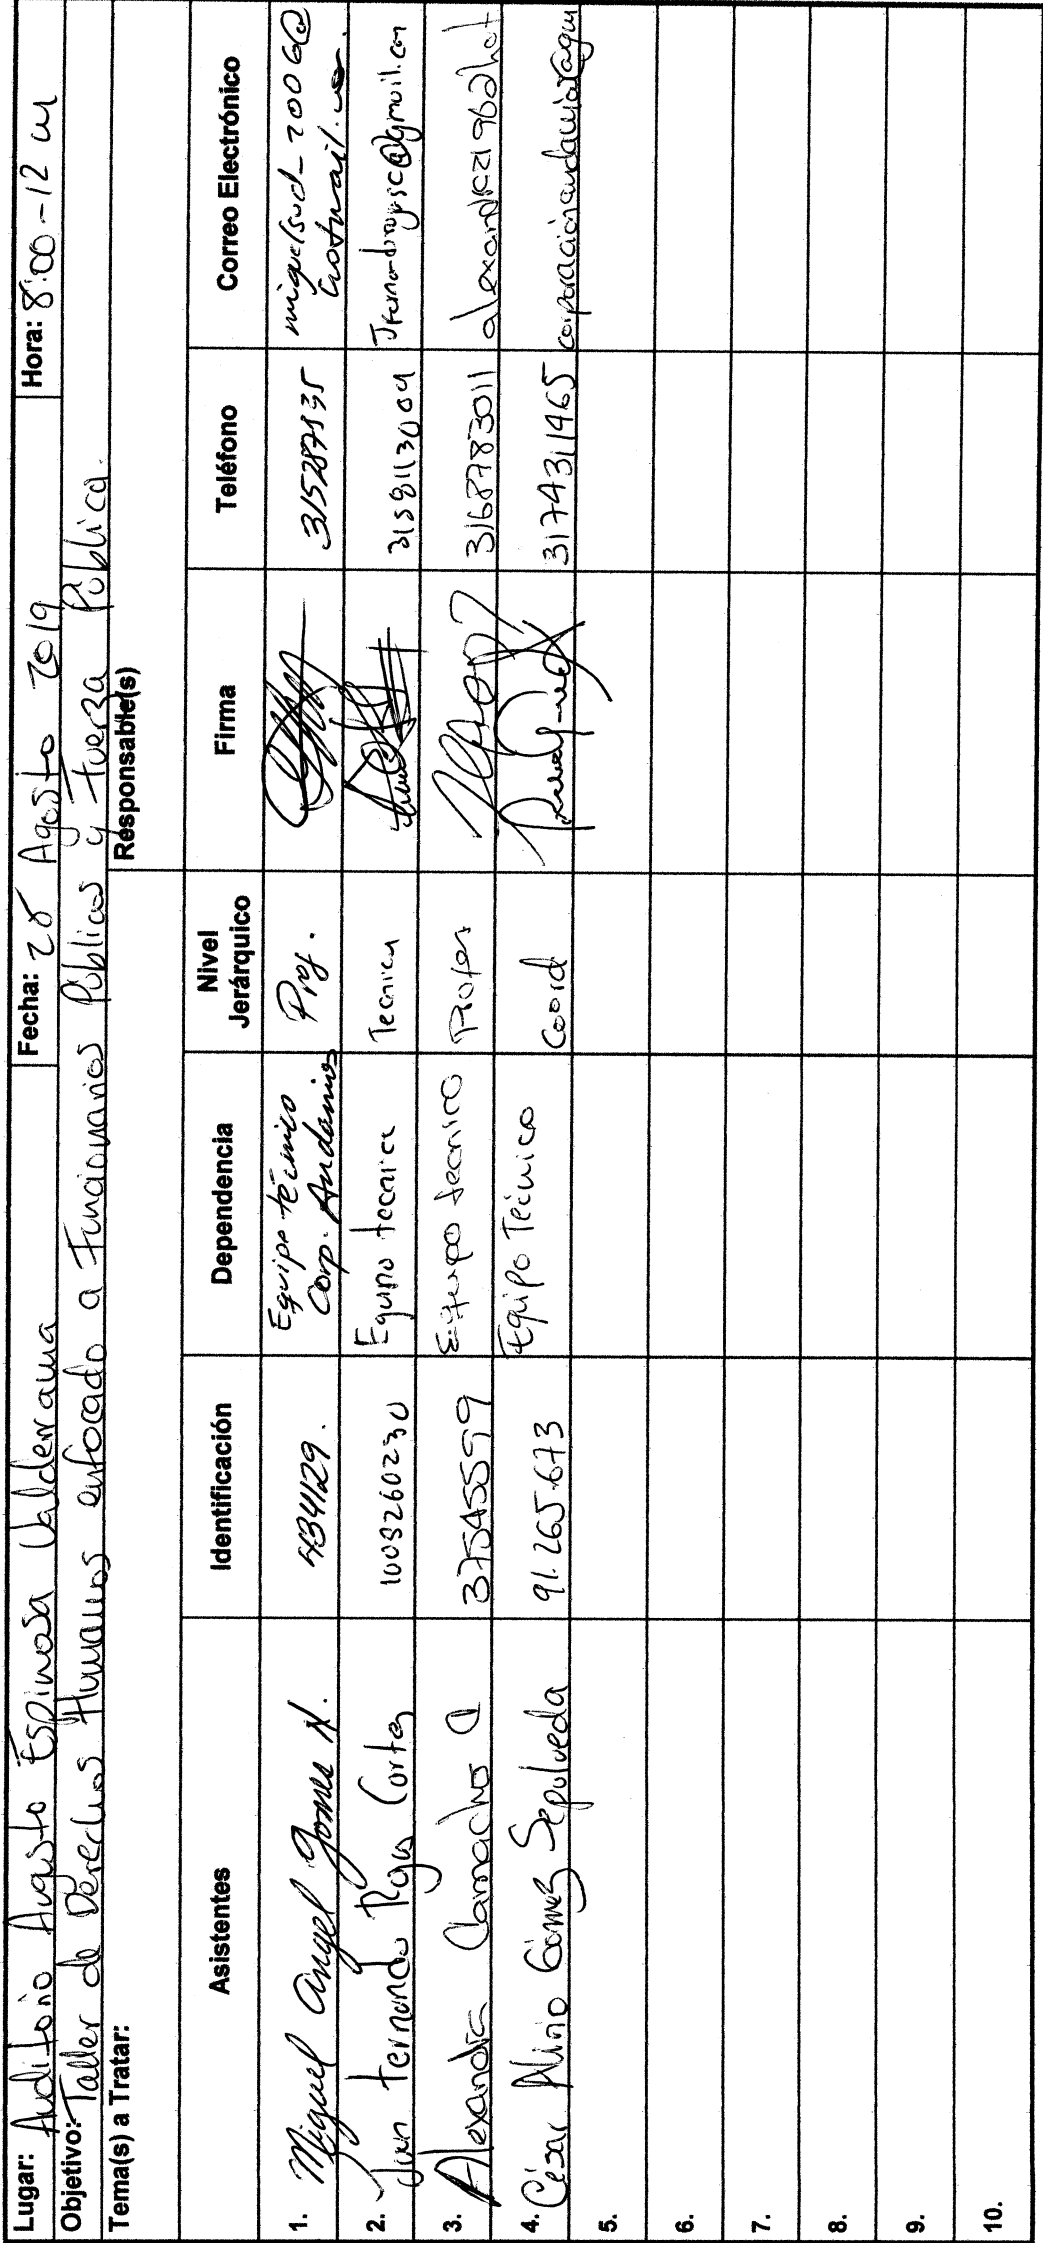 Lugar: Auditorio Augusto Espinosa Valderrama Fecha: 28 Agosto 2019 Hora: 8:00-12 m
Objetivo: Taller de Derechos Humanos enfocado a Funcionarios Públicos y Fuerza Pública.
Tema(s) a Tratar: Responsable(s)
Asistentes Identificación Dependencia Nivel Jerárquico Firma Teléfono Correo Electrónico
1. Miguel Angel Gomez N. 4341129. Equipo técnico Corp. Andamios Prof. 315287535
2. Juan Fernando Rojas Cortes Equipo tecnico Tecnico
3. Alexandra Camacho C 37545599 Equipo tecnico Profes 3168783011
4. César Alirio Gómez Sepulveda 91.265.673 Equipo Técnico Coord 3174311465
5.
6.
7.
8.
9.
10.